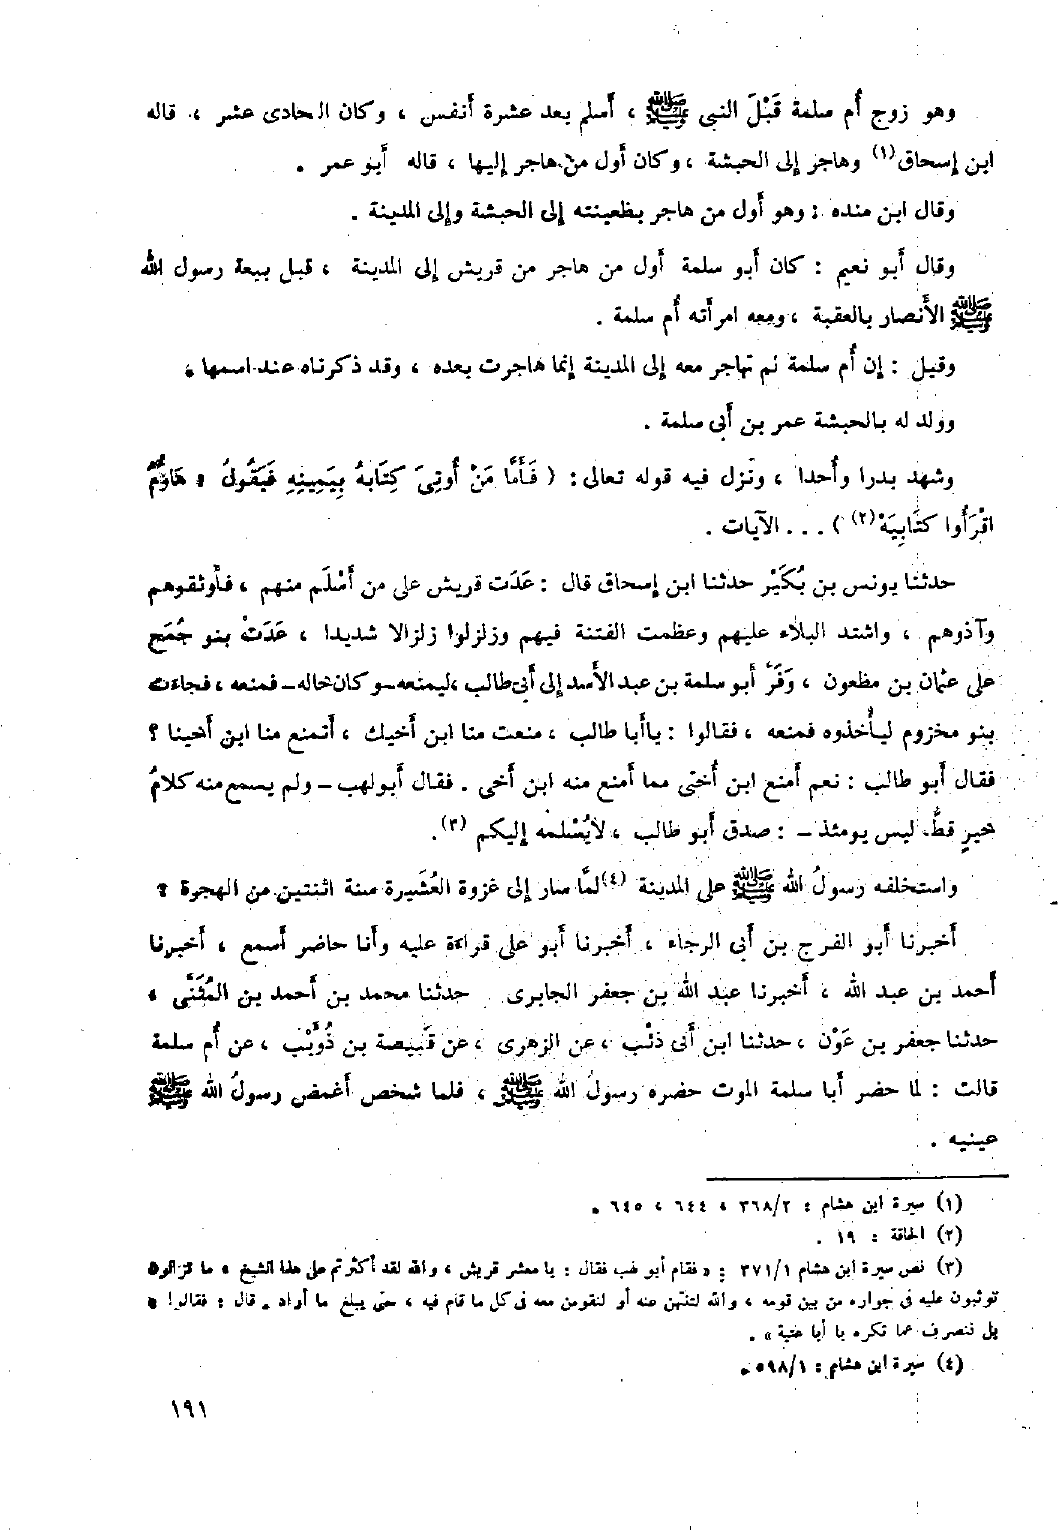 وهو زوج أُم سلمة قَبْلَ النبى ﷺ ، أَسلم بعد عشرة أَنفس ، وكان الحادى عشر ، قاله
ابن إسحاق(١) وهاجر إلى الحبشة ، وكان أَول من هاجر إليها ، قاله أَبو عمر .
وقال ابن منده : وهو أَول من هاجر بظعينته إلى الحبشة وإلى المدينة .
وقال أَبو نعيم : كان أَبو سلمة أَول من هاجر من قريش إلى المدينة ، قبل بيعة رسول الله
ﷺ الأَنصار بالعقبة ، ومعه امرأَته أُم سلمة .
وقيل : إن أُم سلمة لم تهاجر معه إلى المدينة إنما هاجرت بعده ، وقد ذكرناه عند اسمها .
وولد له بالحبشة عمر بن أَبى سلمة .
وشهد بدرا وأُحدا ، ونزل فيه قوله تعالى : ( فَأَمَّا مَنْ أُوتِىَ كِتَابَهُ بِيَمِينِهِ فَيَقُولُ ، هَاؤُمُ
اقْرَأُوا كتَابِيَهْ(٢) ) . . . الآيات .
حدثنا يونس بن بُكَيْر حدثنا ابن إسحاق قال : عَدَت قريش على من أَسْلَم منهم ، فأَوثقوهم
وآذوهم ، واشتد البلاء عليهم وعظمت الفتنة فيهم وزلزلوا زلزالا شديدا ، عَدَتْ بنو جُمَح
على عثمان بن مظعون ، وَفَرَّ أَبو سلمة بن عبد الأَسد إلى أَبى طالب ، ليمنعه – وكان خاله – فمنعه ، فجاءت
بنو مخزوم ليأْخذوه فمنعه ، فقالوا : ياأَبا طالب ، منعت منا ابن أَخيك ، أَتمنع منا ابن أَخينا ؟
فقال أَبو طالب : نعم أَمنع ابن أُختى مما أَمنع منه ابن أَخى . فقال أَبولهب – ولم يسمع منه كلامُ
خيرٍ قطُّ، ليس يومئذ – : صدق أَبو طالب ، لايُسْلمه إليكم (٣).
واستخلفه رسولُ الله ﷺ على المدينة (٤)لمَّا سار إلى غزوة العُشَيرة سنة اثنتين من الهجرة .
أَخبرنا أَبو الفرج بن أَبى الرجاء ، أَخبرنا أَبو على قراءة عليه وأَنا حاضر أَسمع ، أَخبرنا
أَحمد بن عبد الله ، أَخبرنا عبد الله بن جعفر الجابرى حدثنا محمد بن أَحمد بن المُثَنَّى ،
حدثنا جعفر بن عَوْن ، حدثنا ابن أَبى ذئب ، عن الزهرى ، عن قَبِيصة بن ذُوَيْب ، عن أُم سلمة
قالت : لما حضر أَبا سلمة الموت حضره رسولُ الله ﷺ ، فلما شخص أَغمض رسولُ الله ﷺ
عينيه .
(١) سيرة ابن هشام : ٣٦٨/٢ ، ٦٤٤ ، ٦٤٥ .
(٢) الحاقة : ١٩ .
(٣) نص سيرة ابن هشام ٣٧١/١ : « فقام أبو لهب فقال : يا معشر قريش ، والله لقد أكثرتم على هذا الشيخ ، ما تزالون
توثبون عليه فى جواره من بين قومه ، والله لتنتهن عنه أو لنقومن معه فى كل ما قام فيه ، حتى يبلغ ما أراد . قال : فقالوا :
بل ننصرف عما تكره يا أبا عتبة » .
(٤) سيرة ابن هشام : ٥٩٨/١ .
١٩١